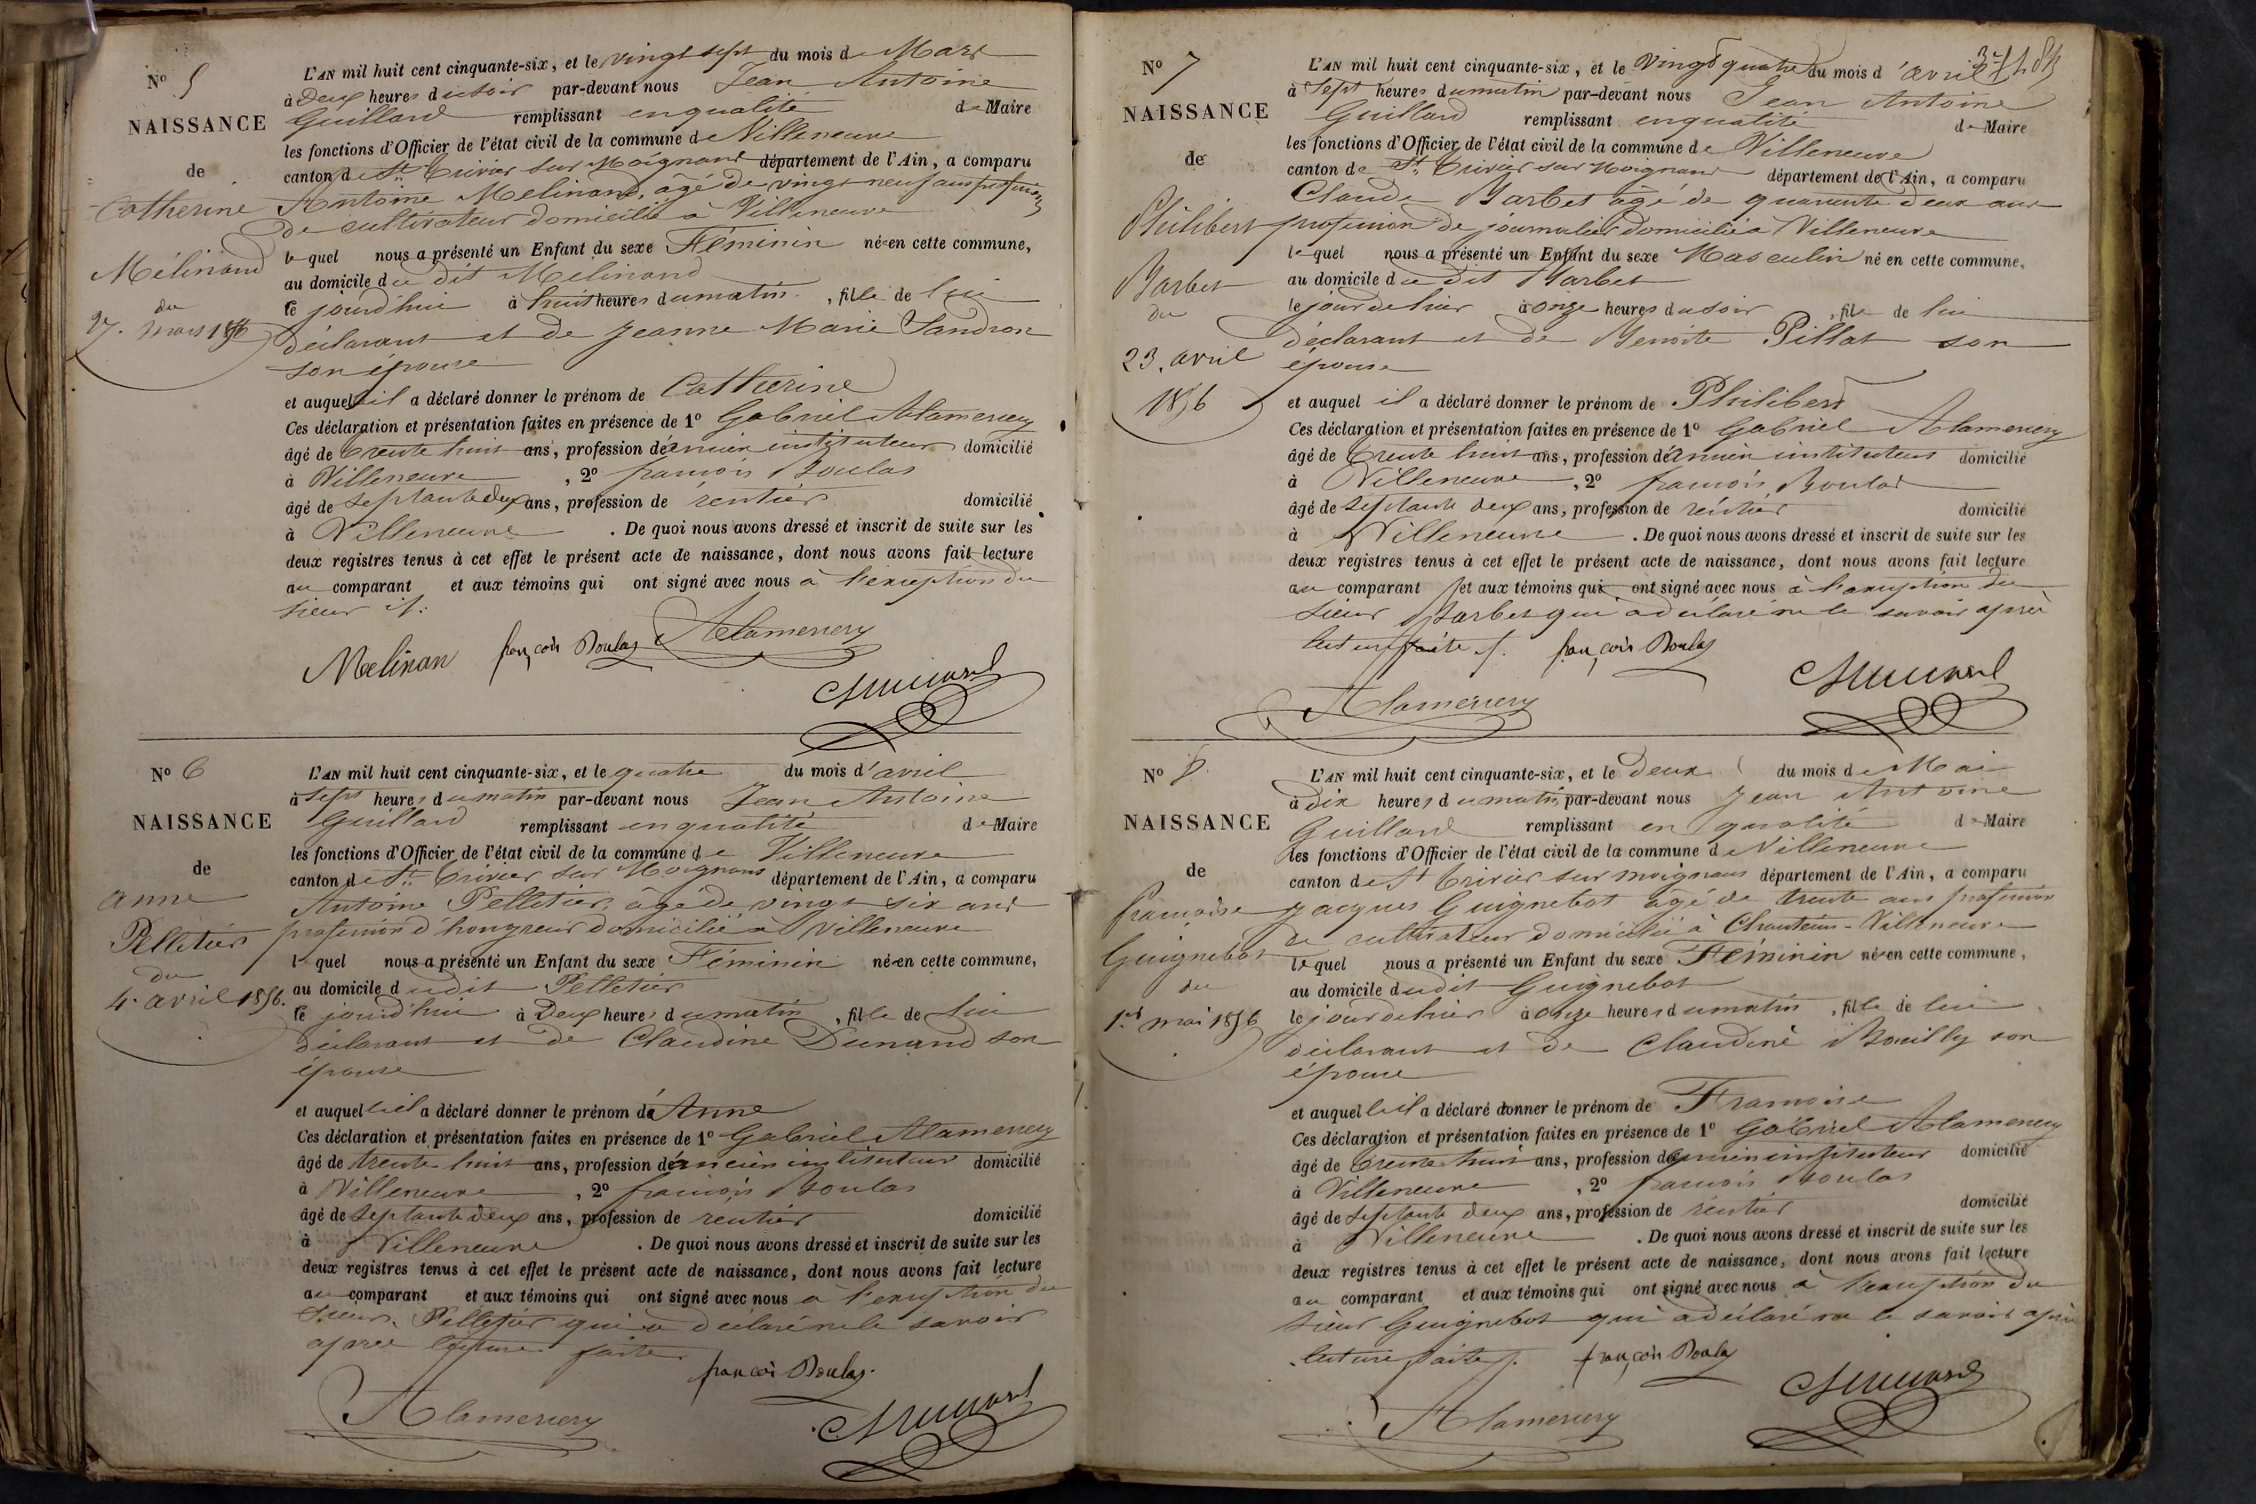 N° 5
NAISSANCE
de
Catherine
Mélinand
du
27. mars 1856
L'AN mil huit cent cinquante-six, et le vingt sept du mois de Mars
à Deux heures du soir par-devant nous Jean Antoine
Guillard remplissant en qualité de Maire
les fonctions d'Officier de l'état civil de la commune de Villeneuve
canton de St. Trivier sur Moignans département de l'Ain, a comparu
Antoine Melinand, âgé de vingt neuf ans profession
de cultivateur domicilié à Villeneuve
lequel nous a présenté un Enfant du sexe Féminin née en cette commune,
au domicile du dit Melinand
le jourd'hui à huit heures du matin, fille de lui
déclarant et de Jeanne Marie Sandron
son épouse
et auquel il a déclaré donner le prénom de Catherine
Ces déclaration et présentation faites en présence de 1° Gabriel Alamercery
âgé de trente huit ans, profession d'ancien instituteur domicilié
à Villeneuve, 2° françois Boulas
âgé de septante deux ans, profession de rentier domicilié
à Villeneuve. De quoi nous avons dressé et inscrit de suite sur les
deux registres tenus à cet effet le présent acte de naissance, dont nous avons fait lecture
au comparant et aux témoins qui ont signé avec nous à l'exception du
sieur
Melinan françois Boulas Alamercery
Guillard
N° 6
NAISSANCE
de
anne
Pelletier
du
4. avril 1856.
L'AN mil huit cent cinquante-six, et le quatre du mois d'avril
à sept heures du matin par-devant nous Jean Antoine
Guillard remplissant en qualité de Maire
les fonctions d'Officier de l'état civil de la commune de Villeneuve
canton de St. Trivier sur Moignans département de l'Ain, a comparu
Antoine Pelletier, âgé de vingt six ans
profession d'hongreur domicilié à Villeneuve
lequel nous a présenté un Enfant du sexe Féminin née en cette commune,
au domicile dudit Pelletier
le jourd'hui à Deux heures du matin, fille de lui
déclarant et de Claudine Dunand son
épouse
et auquel il a déclaré donner le prénom de Anne
Ces déclaration et présentation faites en présence de 1° Gabriel Alamercery
âgé de trente huit ans, profession d'ancien instituteur domicilié
à Villeneuve, 2° françois Boulas
âgé de septante deux ans, profession de rentier domicilié
à Villeneuve. De quoi nous avons dressé et inscrit de suite sur les
deux registres tenus à cet effet le présent acte de naissance, dont nous avons fait lecture
au comparant et aux témoins qui ont signé avec nous à l'exception du
sieur Pelletier qui a déclaré ne le savoir
après lecture faite.
françois Boulas.
Alamercery Guillard
N° 7
NAISSANCE
de
Philibert
Barbet
du
23. avril
1856
L'AN mil huit cent cinquante-six, et le Vingt quatre du mois d'avril
à sept heures du matin par-devant nous Jean Antoine
Guillard remplissant en qualité de Maire
les fonctions d'Officier de l'état civil de la commune de Villeneuve
canton de St. Trivier sur Moignans département de l'Ain, a comparu
Claude Barbet âgé de quarante deux ans
profession de journalier domicilié à Villeneuve
lequel nous a présenté un Enfant du sexe Masculin né en cette commune,
au domicile du dit Barbet
le jour de hier à onze heures du soir, fils de lui
déclarant et de Benoite Pillat son
épouse
et auquel il a déclaré donner le prénom de Philibert
Ces déclaration et présentation faites en présence de 1° Gabriel Alamercery
âgé de trente huit ans, profession d'ancien instituteur domicilié
à Villeneuve, 2° françois Boulas
âgé de septante deux ans, profession de rentier domicilié
à Villeneuve. De quoi nous avons dressé et inscrit de suite sur les
deux registres tenus à cet effet le présent acte de naissance, dont nous avons fait lecture
au comparant et aux témoins qui ont signé avec nous à l'exception du
sieur Barbet qui a déclaré ne le savoir après
lecture faite. françois Boulas
Guillard
Alamercery
N° 8
NAISSANCE
de
françoise
Guignebot
du
1er mai 1856
L'AN mil huit cent cinquante-six, et le Deux du mois de Mai
à dix heures du matin par-devant nous Jean Antoine
Guillard remplissant en qualité de Maire
les fonctions d'Officier de l'état civil de la commune de Villeneuve
canton de St Trivier sur moignans département de l'Ain, a comparu
Jacques Guignebot âgé de trente ans profession
de cultivateur domicilié à Chanteins-Villeneuve
lequel nous a présenté un Enfant du sexe Féminin née en cette commune,
au domicile dudit Guignebot
le jour de hier à onze heures du matin, fille de lui
déclarant et de Claudine Bouilly son
épouse
et auquel il a déclaré donner le prénom de Françoise
Ces déclaration et présentation faites en présence de 1° Gabriel Alamercery
âgé de trente huit ans, profession d'ancien instituteur domicilié
à Villeneuve, 2° françois Boulas
âgé de septante deux ans, profession de rentier domicilié
à Villeneuve. De quoi nous avons dressé et inscrit de suite sur les
deux registres tenus à cet effet le présent acte de naissance, dont nous avons fait lecture
au comparant et aux témoins qui ont signé avec nous à l'exception du
sieur Guignebot qui a déclaré ne le savoir après
lecture faite. françois Boulas
Guillard
Alamercery